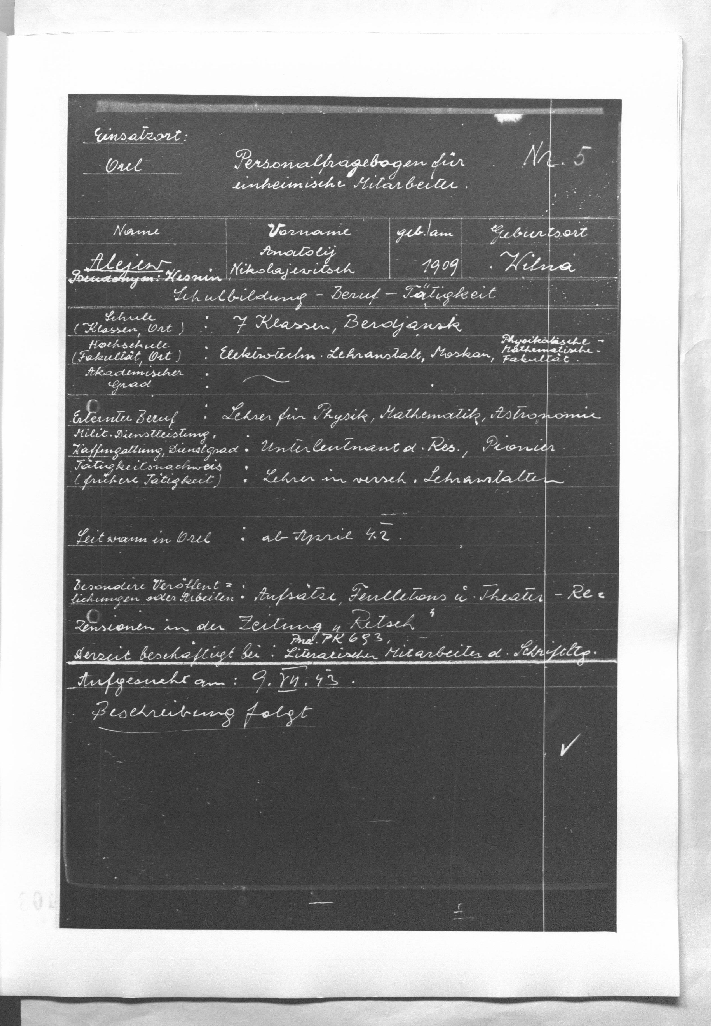 Einsatzort:
Orel
Personalfragebogen für
einheimische Mitarbeiter.
Nr. 5
Name Vorname geb./am Geburtsort
Alejew Anatolij
Nikolajewitsch 1909 Wilna
Pseudonym: Wesnin
Schulbildung - Beruf - Tätigkeit
Schule
(Klassen, Ort) : 7 Klassen, Berdjansk
Hochschule
(Fakultät, Ort) : Elektrotechn. Lehranstalt, Moskau, Physikalische-
Mathematische-
Fakultät.
Akademischer
Grad :
Erlernter Beruf : Lehrer für Physik, Mathematik, Astronomie
Milit. Dienstleistung,
Waffengattung, Dienstgrad : Unterleutnant d. Res., Pionier
Tätigkeitsnachweis
(frühere Tätigkeit) : Lehrer in versch. Lehranstalten
Seit wann in Orel : ab April 42.
Besondere Veröffent=
lichungen oder Arbeiten : Aufsätze, Feulletons u. Theater - Re=
zensionen in der Zeitung „Retsch"
PK 693,
Derzeit beschäftigt bei : Literarischer Mitarbeiter d. Schriftltg.
Aufgesucht am : 9. VII. 43.
Beschreibung folgt